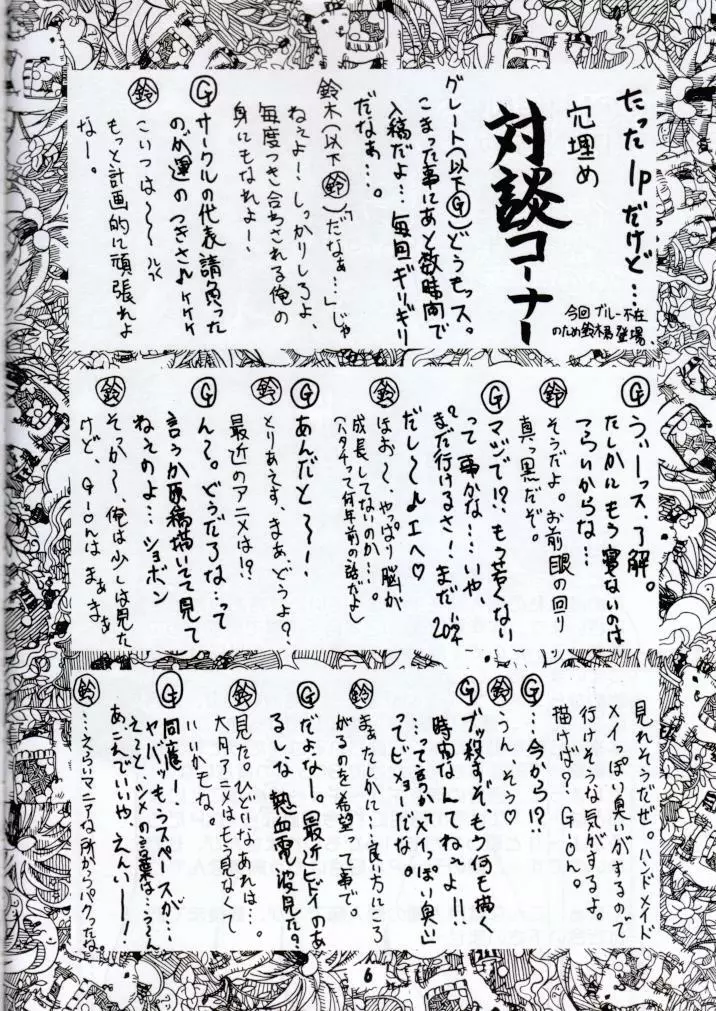 たった1pだけど…
穴埋め
対談コーナー
今回ブルー不在
のため鈴木君登場。
グレート(以下Ⓖ)どうもッス。
こまった事にあと数時間で
入稿だよ…毎回ギリギリ
だなぁ…。
鈴木(以下㊕鈴)「だなぁ…」じゃ
ねぇよ!しっかりしろよ、
毎度つき合わされる俺の
身にもなれよー!
Ⓖ サークルの代表請負った
のが運のつきさ♪ケケケ
鈴 こいつは〜〜
もっと計画的に頑張れよ
なー。
Ⓖ うぃーっス、了解。
たしかにもう寝ないのは
つらいからな…
鈴 そうだよ。お前眼の回り
真っ黒だぞ。
Ⓖ マジで!?もう若くない
って事かな……いや、
まだ行けるさ!まだ20才
だしー♪エヘ♡
鈴 ほお〜、やっぱり脳が
成長してないのか…。
(ハタチって何年前の話だよ)
Ⓖ あんだと〜!
鈴 とりあえず、まあどうよ?
最近のアニメは!?
Ⓖ ん〜。どうだろな…って
言うか原稿描いてて見て
ねぇのよ…ショボン
鈴 そっか〜、俺は少しは見た
けど、G-onはまぁまぁ
見れそうだぜ。ハンドメイド
メイっぽい臭いがするので
行けそうな気がするよ。
描けば?G-on。
Ⓖ …今から!?
鈴 うん、そう♡
Ⓖ ブッ殺すぞもう何も描く
時間なんてねぇよ!!
…って言うか「メイっぽい臭い」
ってビミョーだな。
鈴 まぁたしかに…良い方にころ
がるのを希望って事で
Ⓖ だよなー。最近ヒドイのあ
るしな 熱血電波見た?
鈴 見た。ひどいなあれは…。
大月アニメはもう見なくて
いいかもな。
Ⓖ 同感ー。
ヤバッもうスペースが…
えーと、シメの言葉は…うーん
あこんでいいや、えんいー!
鈴 …えらいマニアな所からパクったね。
6